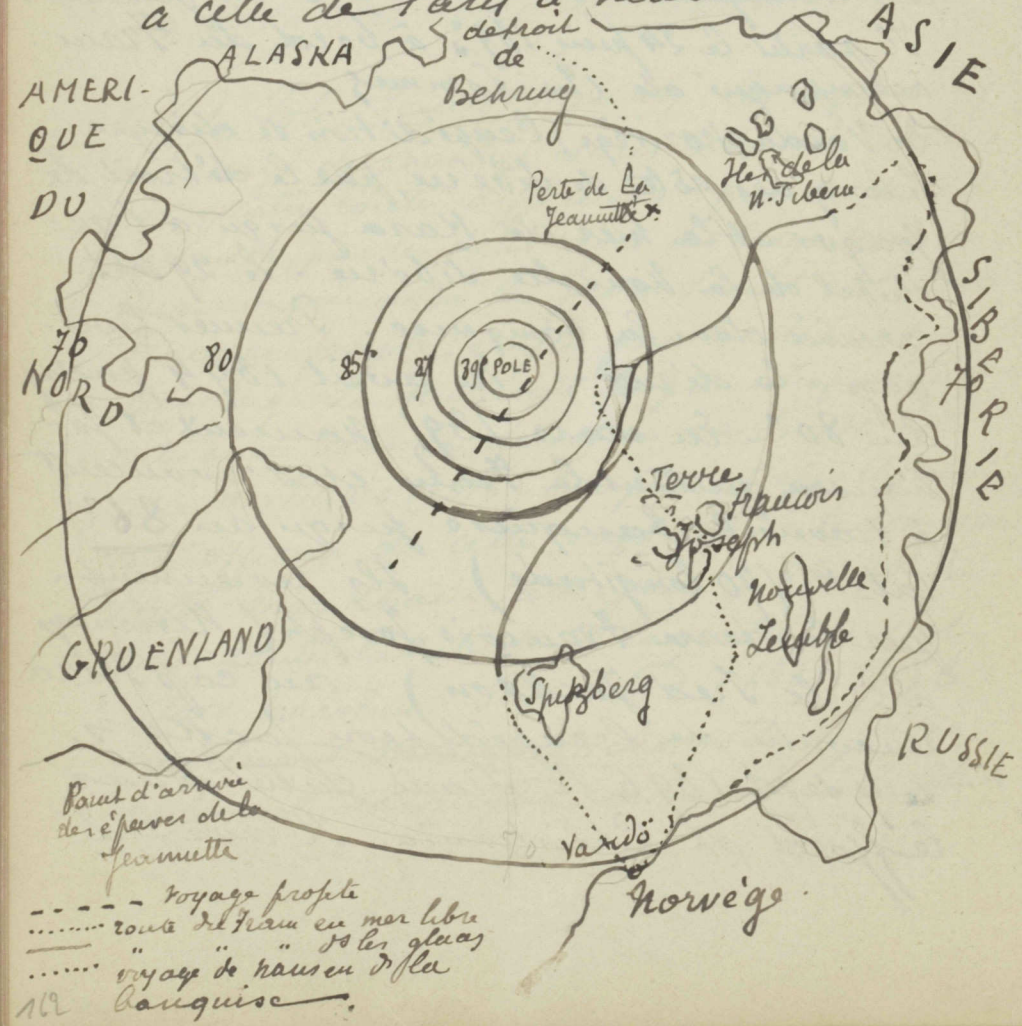 à celle de Paris à
détroit
de
Behring
ALASKA
ASIE
AMERI-
QUE
DU
NORD
Iles de la
N. Siberie
Perte de La
Jeannette
SIBERIE
70
80
85°
87
89°
POLE
70
Terre
François
Joseph
Nouvelle
Zemble
GROENLAND
Spitzberg
RUSSIE
Point d'arrivée
des épaves de la
Jeannette
70
Vardö
Norvège.
voyage projeté
route du Fram en mer libre
" " " ds les glaces
voyage de Nansen ds la
banquise.
162